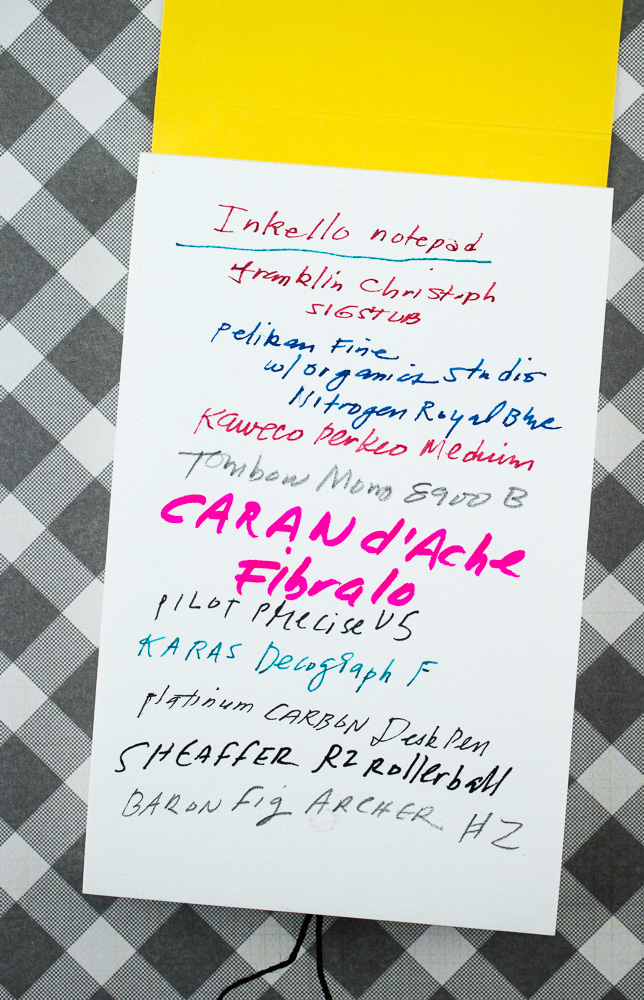 Inkello notepad
Franklin Christoph
SIG STUB
Pelikan Fine
w/organics Studio
Nitrogen Royal Blue
Kaweco Perkeo Medium
Tombow Mono 8900 B
CARAN d'Ache
Fibralo
PILOT Precise V5
KARAS Decograph F
platinum CARBON Desk Pen
SHEAFFER R2 Rollerball
BARON Fig ARCHER #2